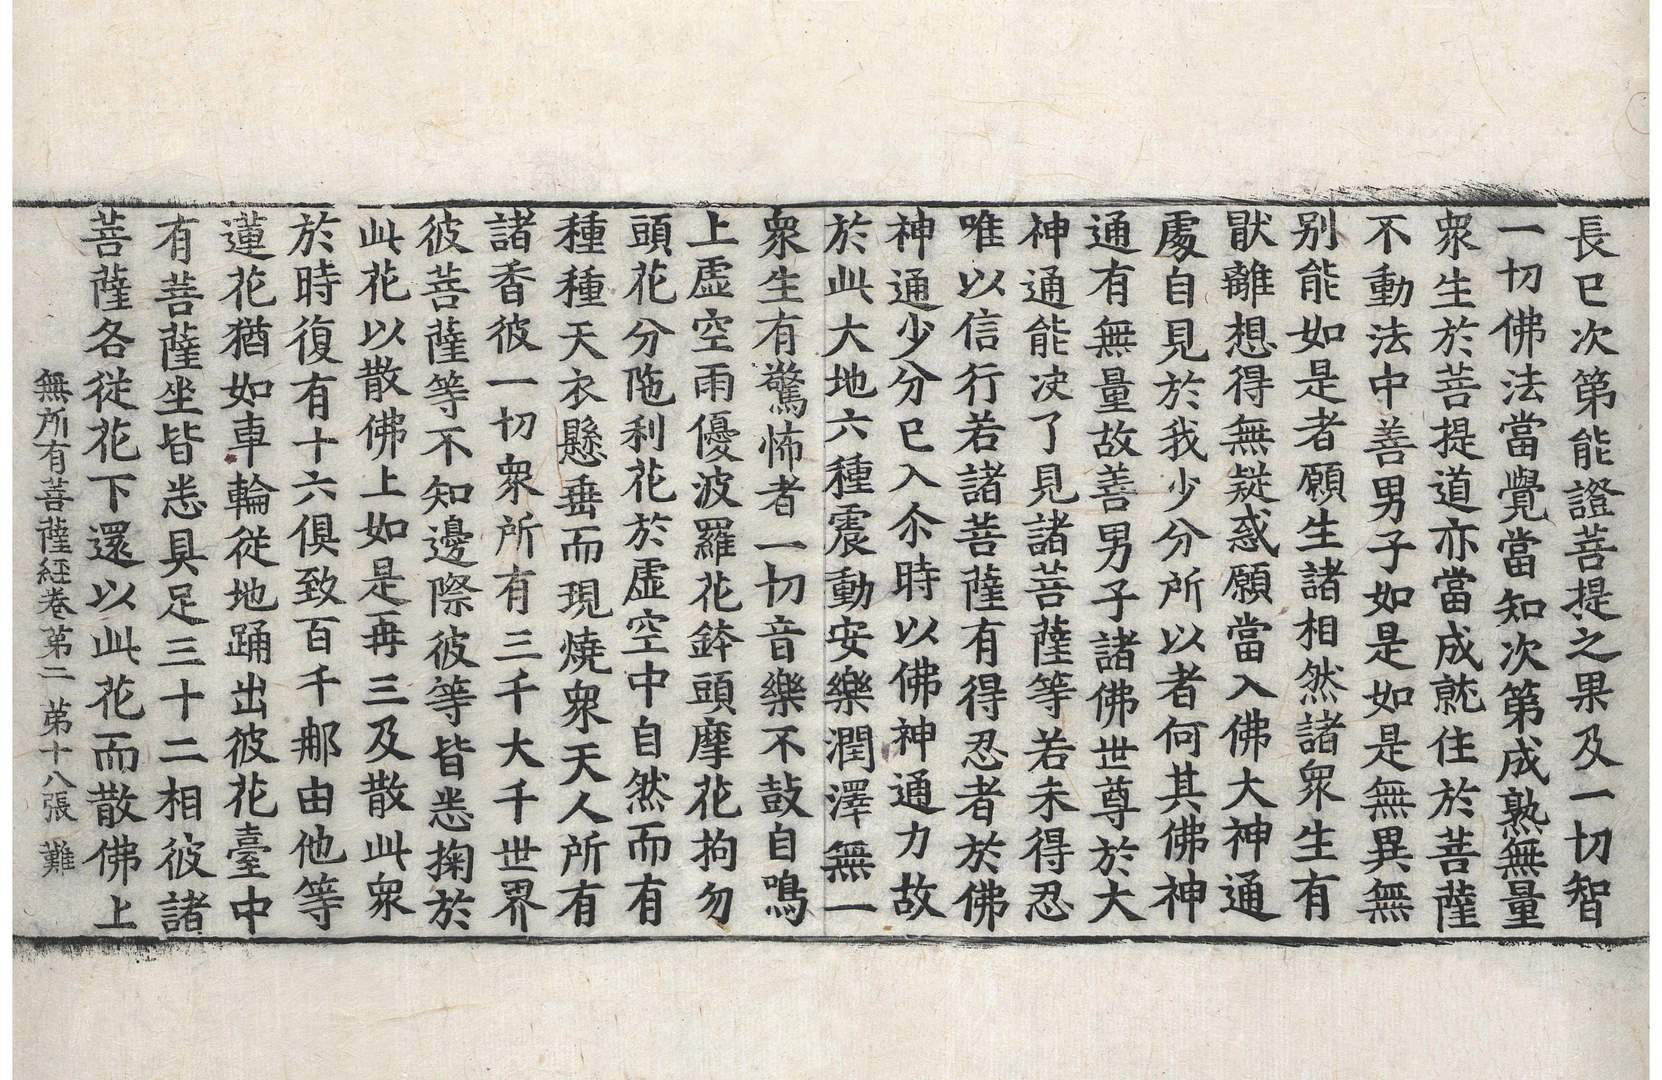 長已次第能證菩提之果及一切智
一切佛法當覺當知次第成熟無量
衆生於菩提道亦當成就住於菩薩
不動法中善男子如是如是無異無
别能如是者願生諸相然諸衆生有
猒離想得無疑惑願當入佛大神通
處自見於我少分所以者何其佛神
通有無量故善男子諸佛世尊於大
神通能决了見諸菩薩等若未得忍
唯以信行若諸菩薩有得忍者於佛
神通少分已入尒時以佛神通力故
於此大地六種震動安樂潤澤無一
衆生有驚怖者一切音樂不鼓自鳴
上虛空雨優波羅花鉢頭摩花拘勿
頭花分陁利花於虛空中自然而有
種種天衣懸垂而現燒衆天人所有
諸香彼一切衆所有三千大千世界
彼菩薩等不知邊際彼等皆悉掬於
此花以散佛上如是再三及散此衆
於時復有十六俱致百千那由他等
蓮花猶如車輪從地踊出彼花臺中
有菩薩坐皆悉具足三十二相彼諸
菩薩各從花下還以此花而散佛上
無所有菩薩經卷第二 苐十八張 難